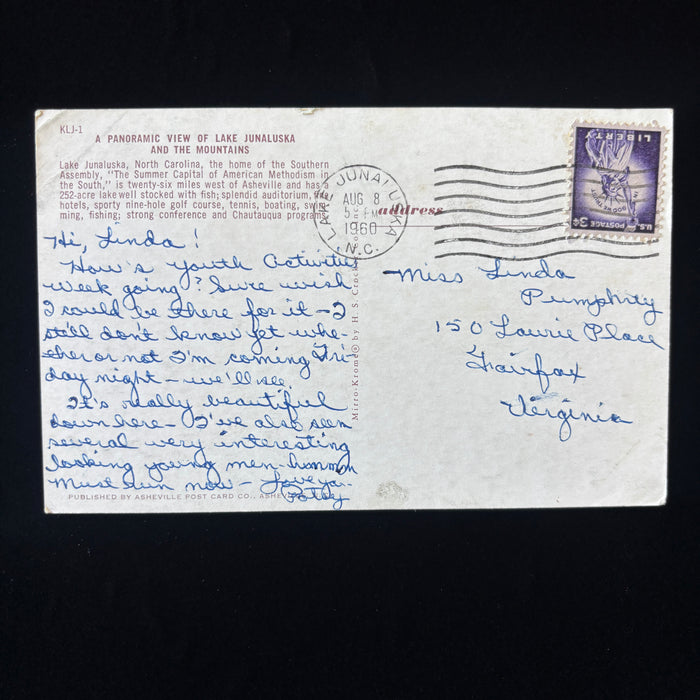 KLJ-1
A PANORAMIC VIEW OF LAKE JUNALUSKA
AND THE MOUNTAINS
Lake Junaluska, North Carolina, the home of the Southern
Assembly, "The Summer Capital of American Methodism in
the South," is twenty-six miles west of Asheville and has a
252-acre lake well stocked with fish; splendid auditorium, fine
hotels, sporty nine-hole golf course, tennis, boating, swim-
ming, fishing; strong conference and Chautauqua programs.
Hi, Linda!
How's Youth Activities
Week going? Sure wish
I could be there for it - I
still don't know yet whe-
ther or not I'm coming Fri-
day night - we'll see.
It's really beautiful
down here - I've also seen
several very interesting
looking young men - hummm
Must run now - Love ya -
Patty
PUBLISHED BY ASHEVILLE POST CARD CO., ASHE
Mirro-Krome® by H. S. Crock
LAKE JUNALUSKA
AUG 8
5 PM
1960
N.C.
address
LIBERTY
IN GOD WE TRUST
U.S. POSTAGE 3¢
Miss Linda
Pumphrey
150 Laurie Place
Fairfax
Virginia